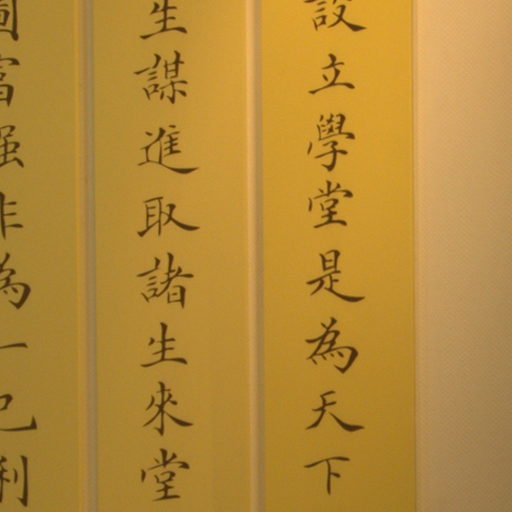 設立學堂是為天下
生謀進取諸生來堂
圖富强非為一己利